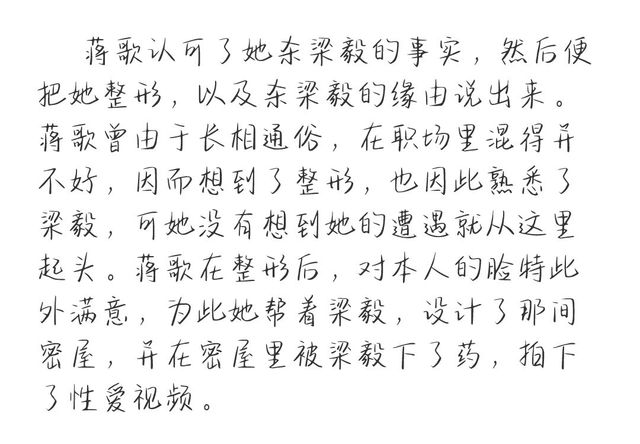 蒋歌认可了她杀梁毅的事实，然后便
把她整形，以及杀梁毅的缘由说出来。
蒋歌曾由于长相通俗，在职场里混得并
不好，因而想到了整形，也因此熟悉了
梁毅，可她没有想到她的遭遇就从这里
起头。蒋歌在整形后，对本人的脸特此
外满意，为此她帮着梁毅，设计了那间
密屋，并在密屋里被梁毅下了药，拍下
了性爱视频。